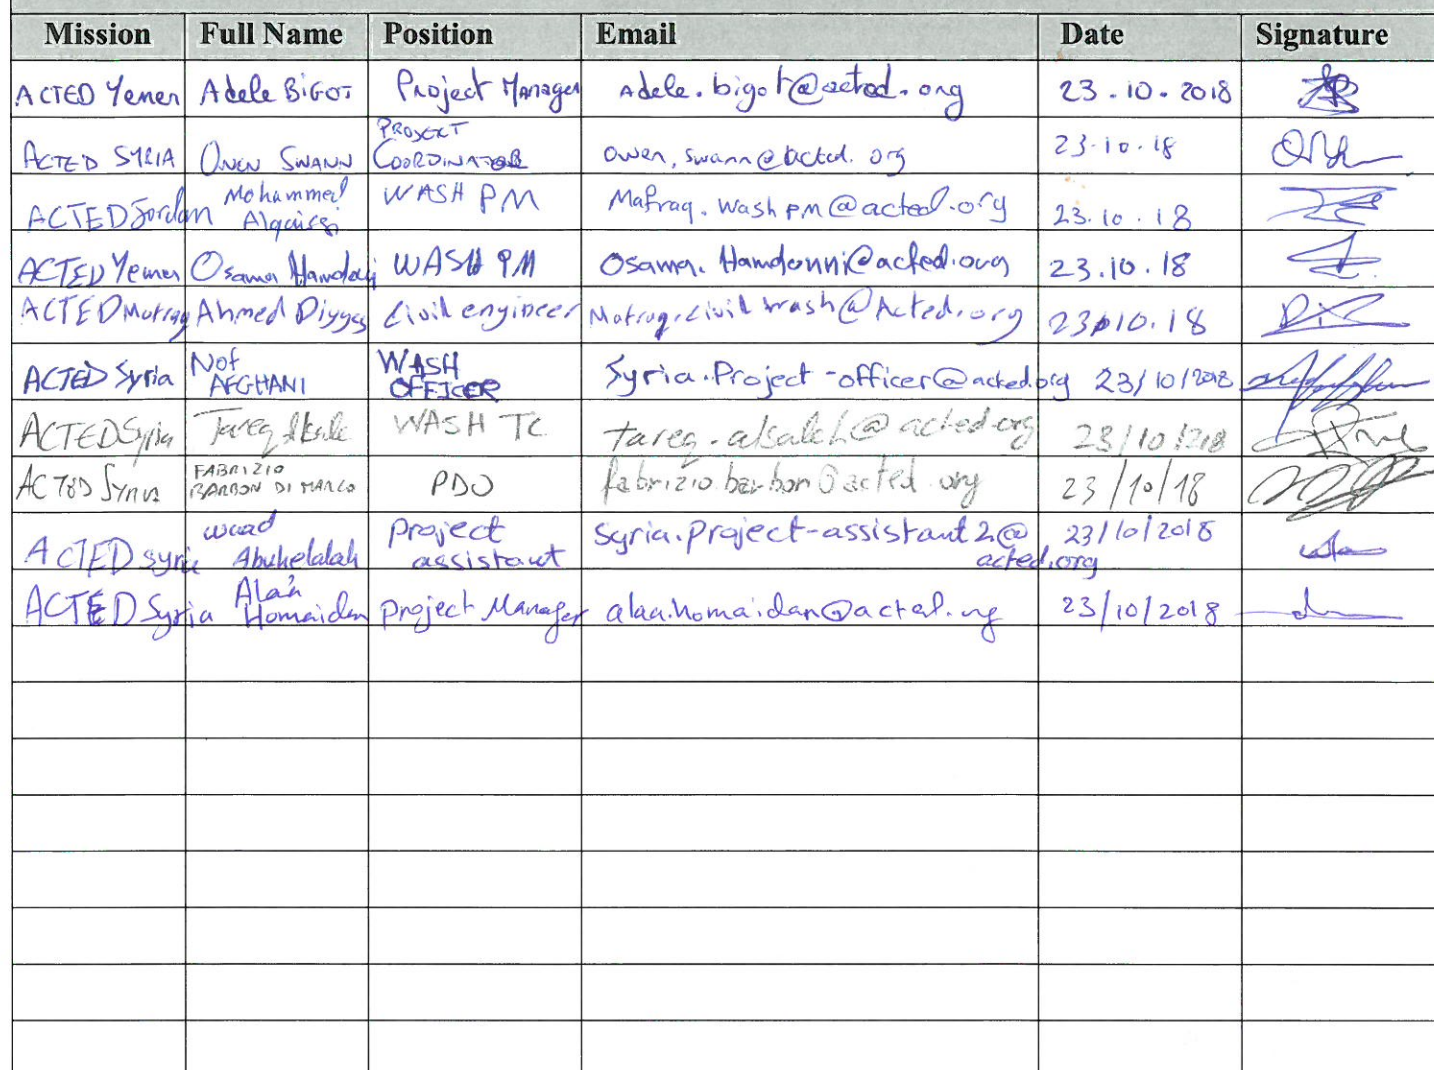 Mission Full Name Position Email Date Signature
ACTED Yemen Adele BIGOT Project Manager Adele.bigot@acted.org 23.10.2018
ACTED SYRIA OWEN SWANN PROJECT COORDINATOR owen.swann@acted.org 23.10.18
ACTED Jordan Mohammed WASH PM Mafraq.washpm@acted.org 23.10.18
ACTED Yemen Osama WASH PM Osama.Hamdonni@acted.org 23.10.18
ACTED Mafraq Ahmed Civil engineer Mafraq.civil.wash@Acted.org 23.10.18
ACTED Syria AFGHANI WASH OFFICER Syria.Project-officer@acted.org 23/10/2018
ACTED Syria Tareq WASH TC tareq.alsaleh@acted.org 23/10/2018
ACTED Syria FABRIZIO BARBON DI MARCO PDO fabrizio.barbon@acted.org 23/10/18
ACTED syria waad Abuhelalah project assistant Syria.project-assistant2@acted.org 23/10/2018
ACTED Syria Alaa Homaidan project Manager alaa.homaidan@acted.org 23/10/2018